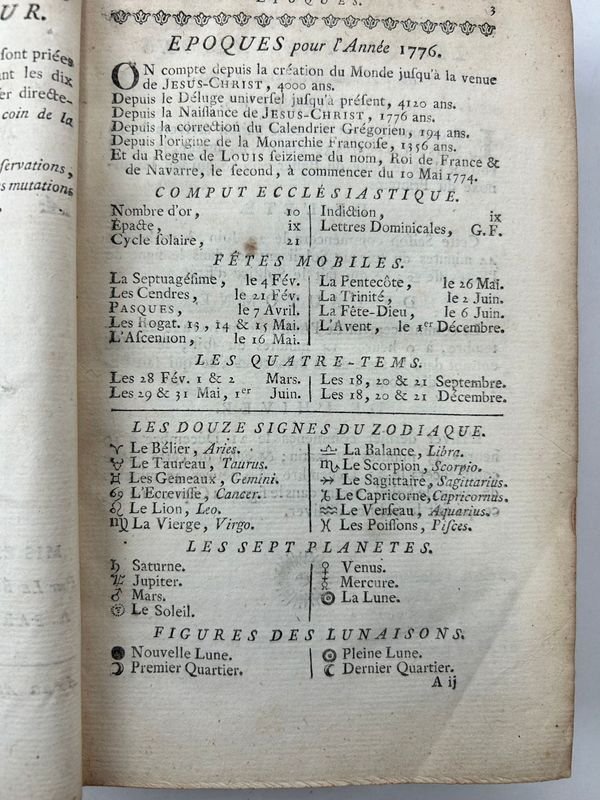 UR.
font priées
nt les dix
er directe-
coin de la
servations,
s mutations
EPOQUES.
3
EPOQUES pour l'Année 1776.
ON compte depuis la création du Monde jusqu'à la venue
de JESUS-CHRIST, 4000 ans.
Depuis le Déluge universel jusqu'à présent, 4120 ans.
Depuis la Naissance de JESUS-CHRIST, 1776 ans.
Depuis la correction du Calendrier Grégorien, 194 ans.
Depuis l'origine de la Monarchie Françoise, 1356 ans.
Et du Regne de LOUIS seizieme du nom, Roi de France &
de Navarre, le second, à commencer du 10 Mai 1774.
COMPUT ECCLÉSIASTIQUE.
Nombre d'or, 10
Épacte, ix
Cycle solaire, 21
Indiction, ix
Lettres Dominicales, G.F.
FÊTES MOBILES.
La Septuagésime, le 4 Fév.
Les Cendres, le 21 Fév.
PASQUES, le 7 Avril.
Les Rogat. 13, 14 & 15 Mai.
L'Ascension, le 16 Mai.
La Pentecôte, le 26 Mai.
La Trinité, le 2 Juin.
La Fête-Dieu, le 6 Juin.
L'Avent, le 1er Décembre.
LES QUATRE-TEMS.
Les 28 Fév. 1 & 2 Mars.
Les 29 & 31 Mai, 1er Juin.
Les 18, 20 & 21 Septembre.
Les 18, 20 & 21 Décembre.
LES DOUZE SIGNES DU ZODIAQUE.
♈ Le Bélier, Aries.
♉ Le Taureau, Taurus.
♊ Les Gemeaux, Gemini.
♋ L'Ecrevisse, Cancer.
♌ Le Lion, Leo.
♍ La Vierge, Virgo.
♎ La Balance, Libra.
♏ Le Scorpion, Scorpio.
♐ Le Sagittaire, Sagittarius.
♑ Le Capricorne, Capricornus.
♒ Le Verseau, Aquarius.
♓ Les Poissons, Pisces.
LES SEPT PLANETES.
♄ Saturne.
♃ Jupiter.
♂ Mars.
☉ Le Soleil.
♀ Venus.
☿ Mercure.
La Lune.
FIGURES DES LUNAISONS.
Nouvelle Lune.
Premier Quartier.
Pleine Lune.
Dernier Quartier.
A ij